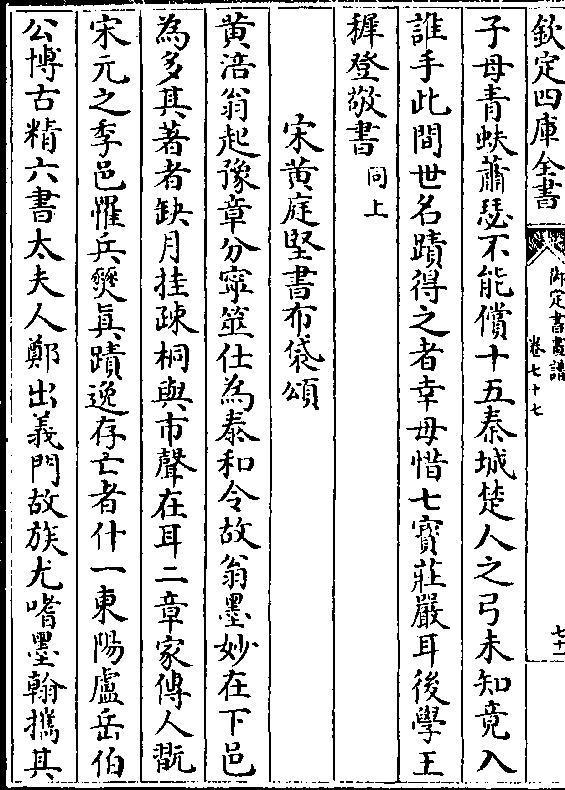 欽定四庫全書
御定書畫譜
卷七十七
七十一
子母青蚨蕭瑟不能償十五秦城楚人之弓未知竟入
誰手此間世名蹟得之者幸毋惜七寳莊嚴耳後學王
穉登敬書 同上
宋黄庭堅書布袋頌
黄涪翁起豫章分寜筮仕為泰和令故翁墨妙在下邑
為多其著者缺月挂疎桐與市聲在耳二章家傳人翫
宋元之季邑罹兵燹真蹟逸存亡者什一東陽盧岳伯
公博古精六書太夫人鄭出義門故族尤嗜墨翰攜其